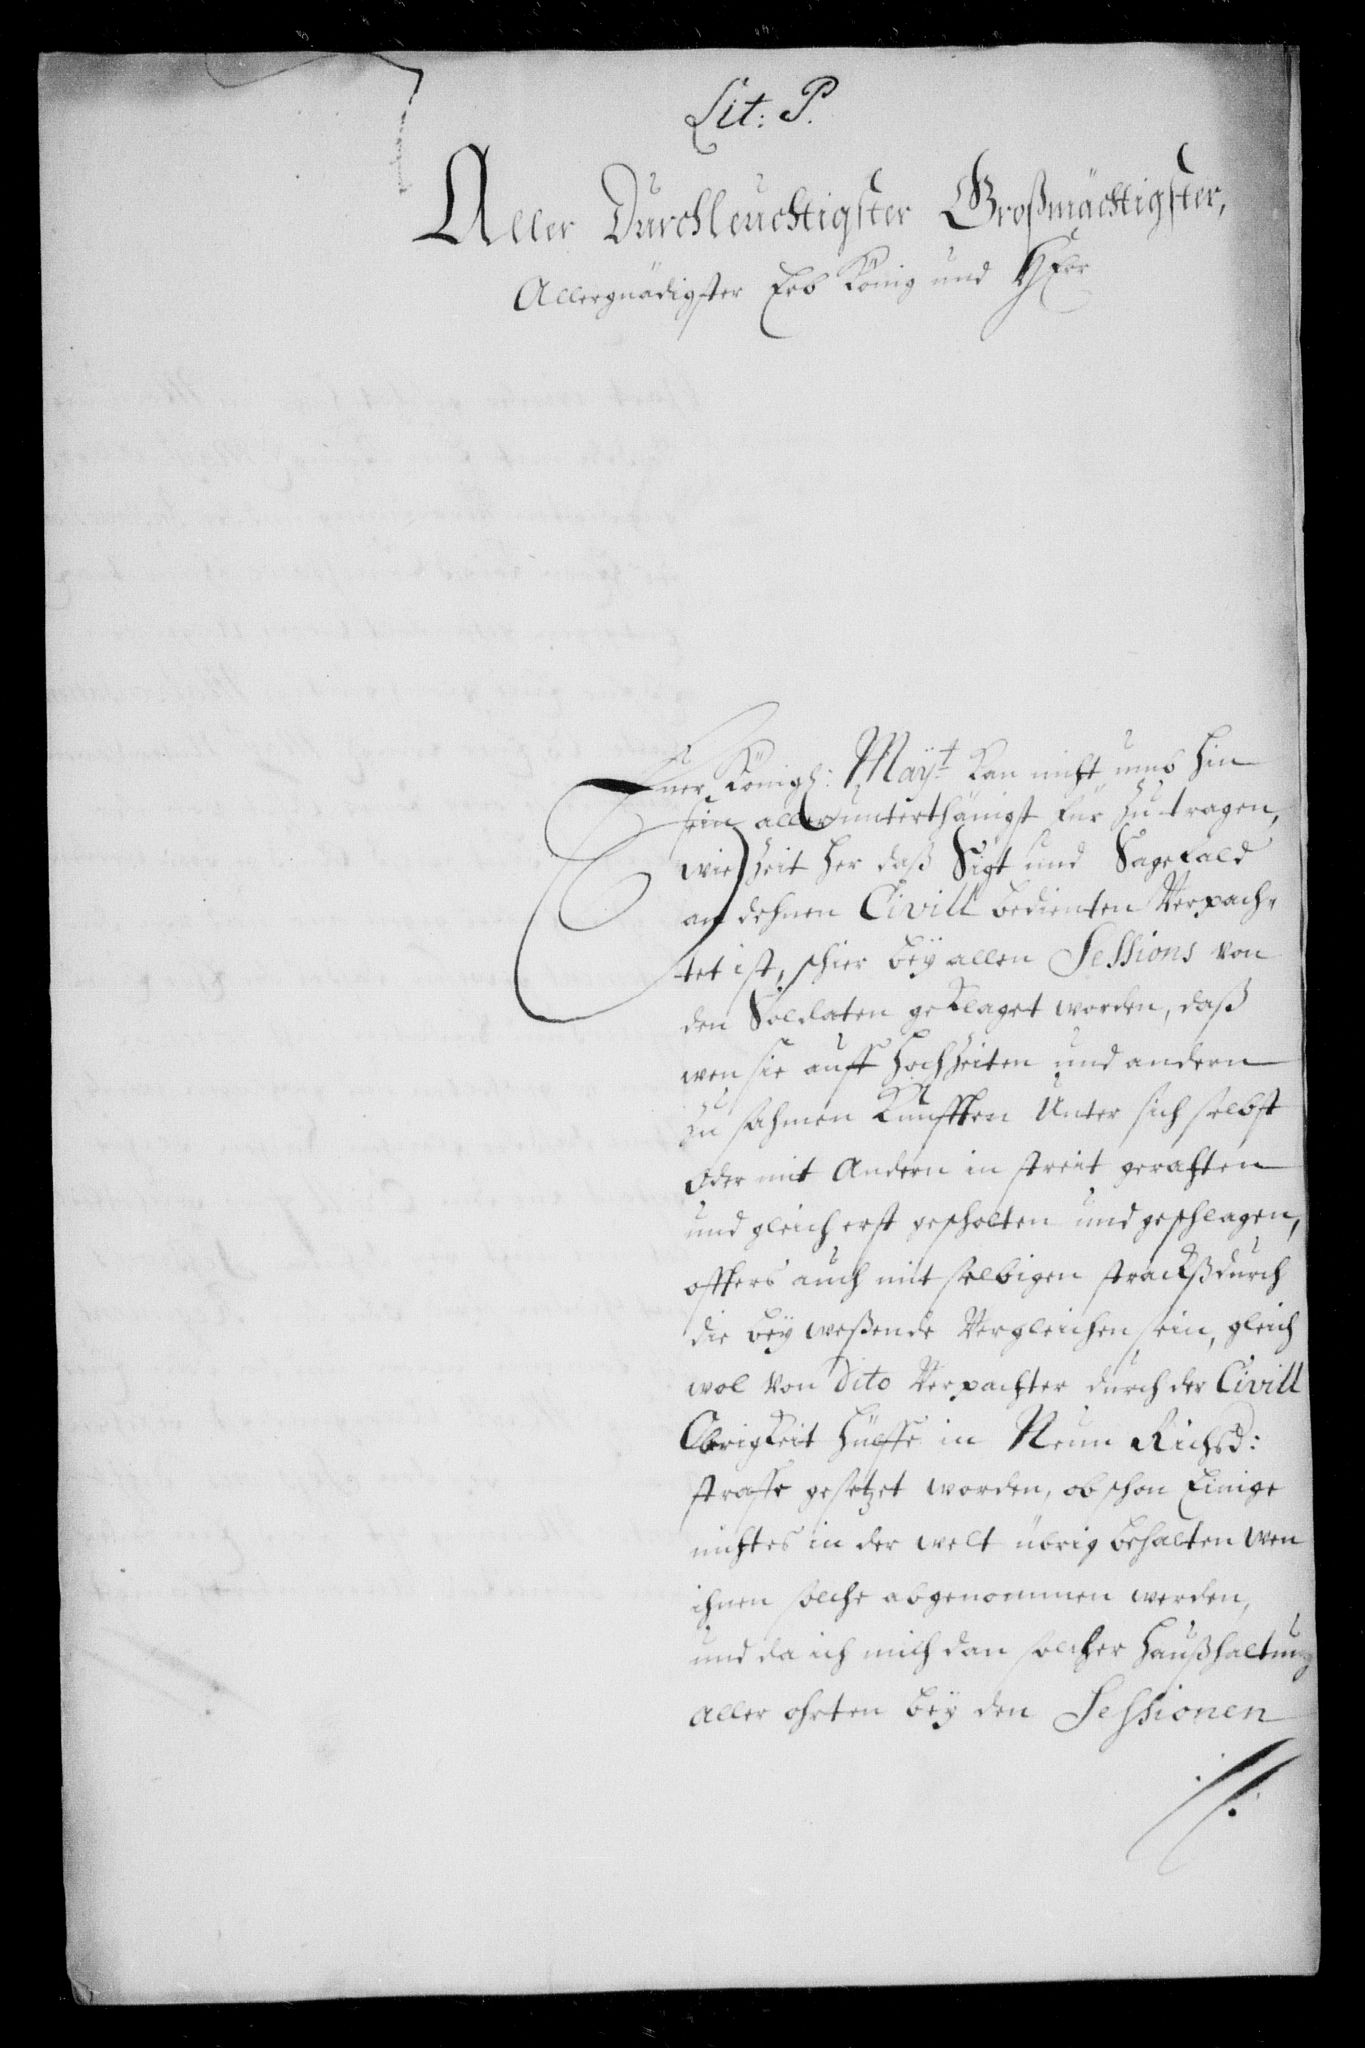 Lit: P.
Aller Durchleuchtigster Großmächtigster,
Allergnädigster Erb König und Herr
Euer Königl: Mayt. kan nicht umb hin
hin aller unterthänigst für zu tragen,
wie Zeit her daß Sigt und Sagefald
an dehnen Civill bedienten Verpach-
tet ist, schier bey allen Sessions von
den Soldaten geklaget worden, daß
wen sie auff Hochzeiten und andern
zu sahmen Kunfften Unter sich selbst
oder mit Andern in streit gerahten
und gleich erst gescholten und geschlagen,
offters auch mit selbigen stracks durch
die bey weßende Vergleichen sein, gleich
wol von dito Verpachter durch der Civill
Obrigkeit Hülffe in Neun Richsd:
straffe gesetzet worden, ob schon Einige
nichtes in der welt übrig behalten wen
ihnen solche abgenommen werden,
und da ich mich dan solcher Haußhaltung
aller ohrten bey den Sessionen